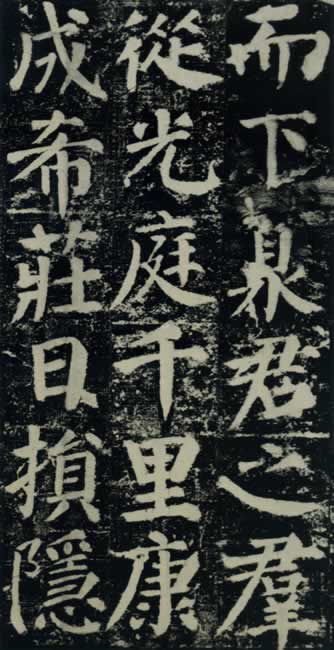 而下臮君之羣
從光庭千里康
成希莊日損隱